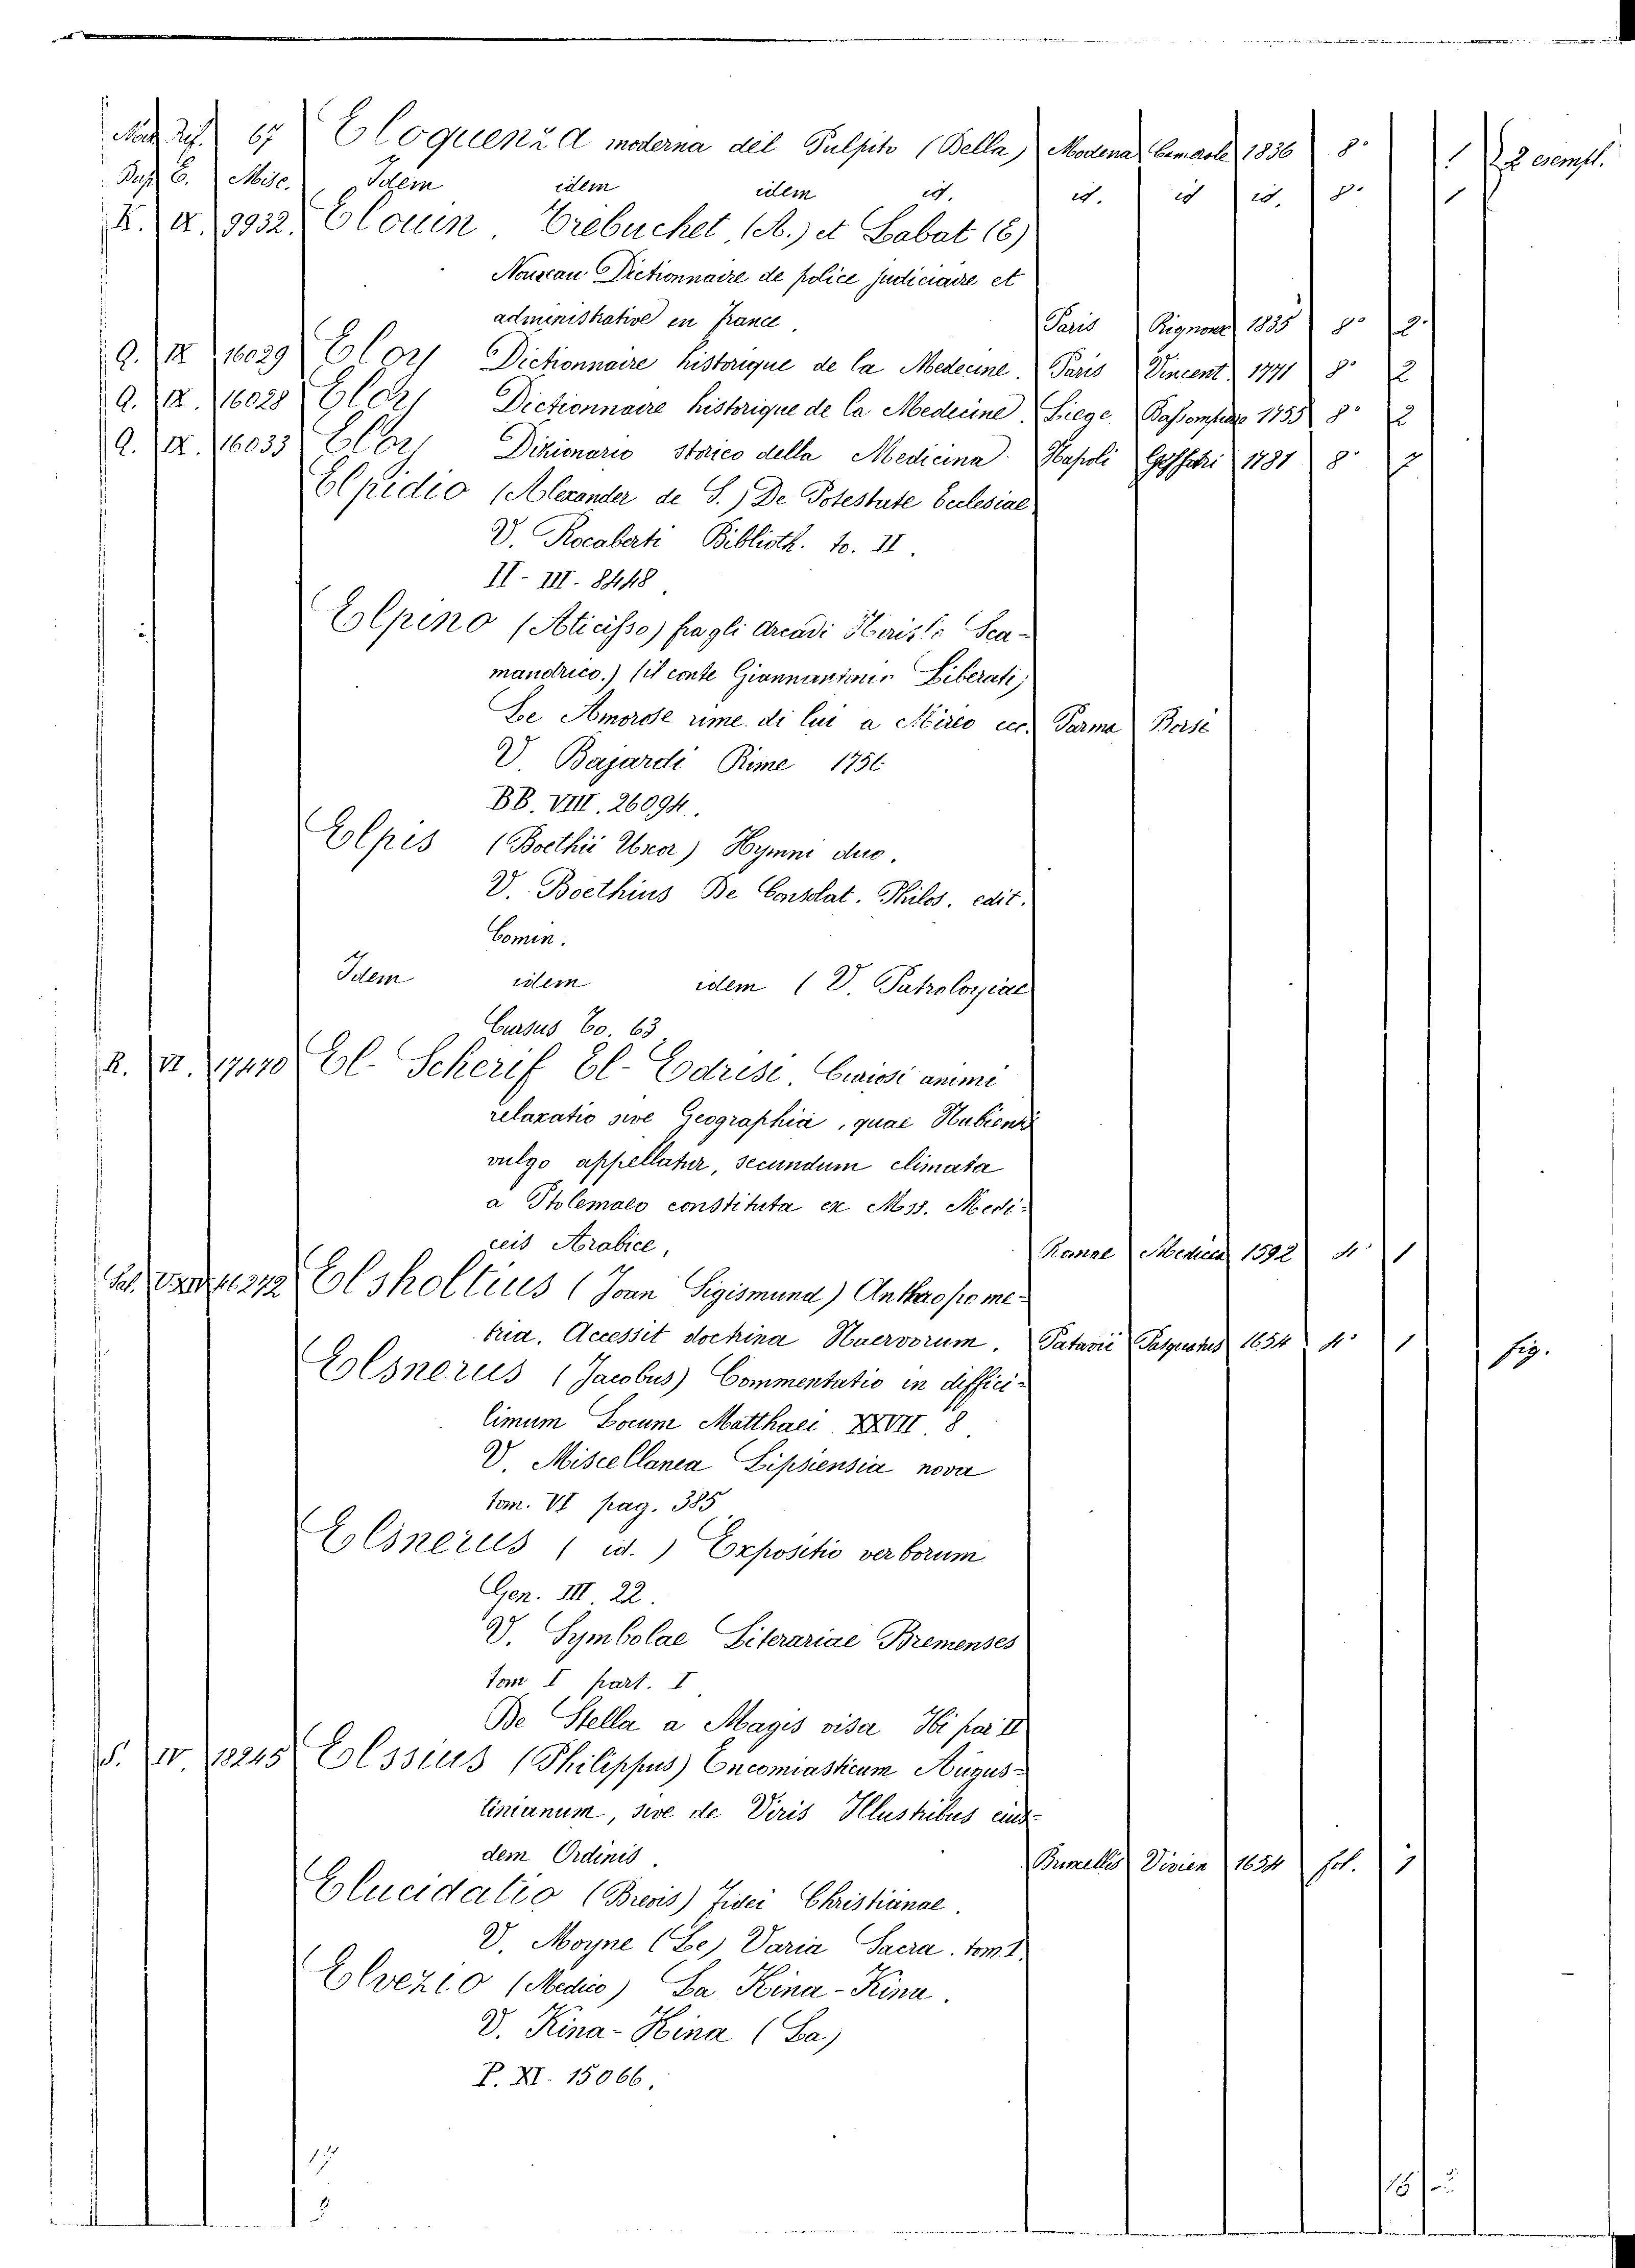 67 Eloquenza moderna del Pulpito (Bella) Modena 1836 8° 1 2 esempl.
E. Misc. Idem idem idem id. id. id id. 8° 1
K. 9932. Elouin, Trebuchet, (A.) et Labat (E)
Nouveau Dictionnaire de police judiciaire et
administrative en France. Paris 1835 8° 2
Q. IX 16029 Eloy Dictionnaire historique de la Medecine. Paris Vincent 1771 8° 2
Q. IX. 16028 Eloy Dictionnaire historique de la Medecine. Liege. Bassompiere 1755 8° 2
Q. IX. 16033 Eloy Dizionario storico della Medicina. Napoli 1781 8° 7
Elpidio (Alexander de S.) De Potestate Ecclesiae
V. Rocaberti Biblioth. to. II.
II - III. 8448
Elpino (Aticisso) fra gli Arcadi Sca-
mandrico.) (il conte Giannantonio Liberati)
Le Amorose rime di lui a Mireo ecc. Parma Borsi
V. Bajardi Rime 1756
BB. VIII. 26094.
Elpis (Boethii Uxor) Hymni duo.
V. Boethius De Consolat. Philos. edit.
Comin.
Idem idem idem (V. Patrologiae
Cursus To. 63
R. VI. 17470 El- Scherif El- Edrisi. Curiosi animi
relaxatio sive Geographia, quae Nubiensis
vulgo appellatur, secundum climata
a Ptolemaeo constituta ex Mss. Medi-
ceis Arabice, Romae Medicea 1592 4° 1
Elsholtius (Joan Sigismund) Anthropome-
tria. Accessit doctrina Naevorum. Patavii Pasquatus 1654 4° 1 fig.
Elsnerus (Jacobus) Commentatio in diffici-
limum Locum Matthaei XXVII. 8
V. Miscellanea Lipsiensia nova
tom. VI pag. 385
Elsnerus (id.) Expositio verborum
Gen. III. 22.
V. Symbolae Literariae Bremenses
tom I part. I
De Stella a Magis visa Ibi par II
S. IV. 18245 Elssius (Philippus) Encomiasticum Augus-
tinianum, sive de Viris Illustribus eius-
dem Ordinis. Bruxellis Vivien 1654 fol. 1
Elucidatio (Brevis) Fidei Christianae.
V. Moyne (Le) Varia Sacra. tom. I.
Elvezio (Medico) La Kina-Kina.
V. Kina-Kina (La)
P. XI. 15066.
17
3
18